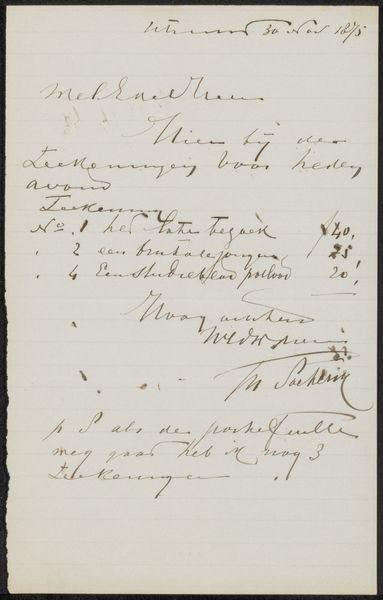 Utrecht 30 Nov 1875
WelEdelHeer
Hier bij de
Teekeningen voor heden
avond
Teekening
No. 1 het late bezoek f 40,
" 2 een brutale jongen 25
" 4 Een studiekop potlood 20,
Hoog achtend
UEdW
p S als de portefeulle
weg gaat heb ik nog 3
Teekeningen